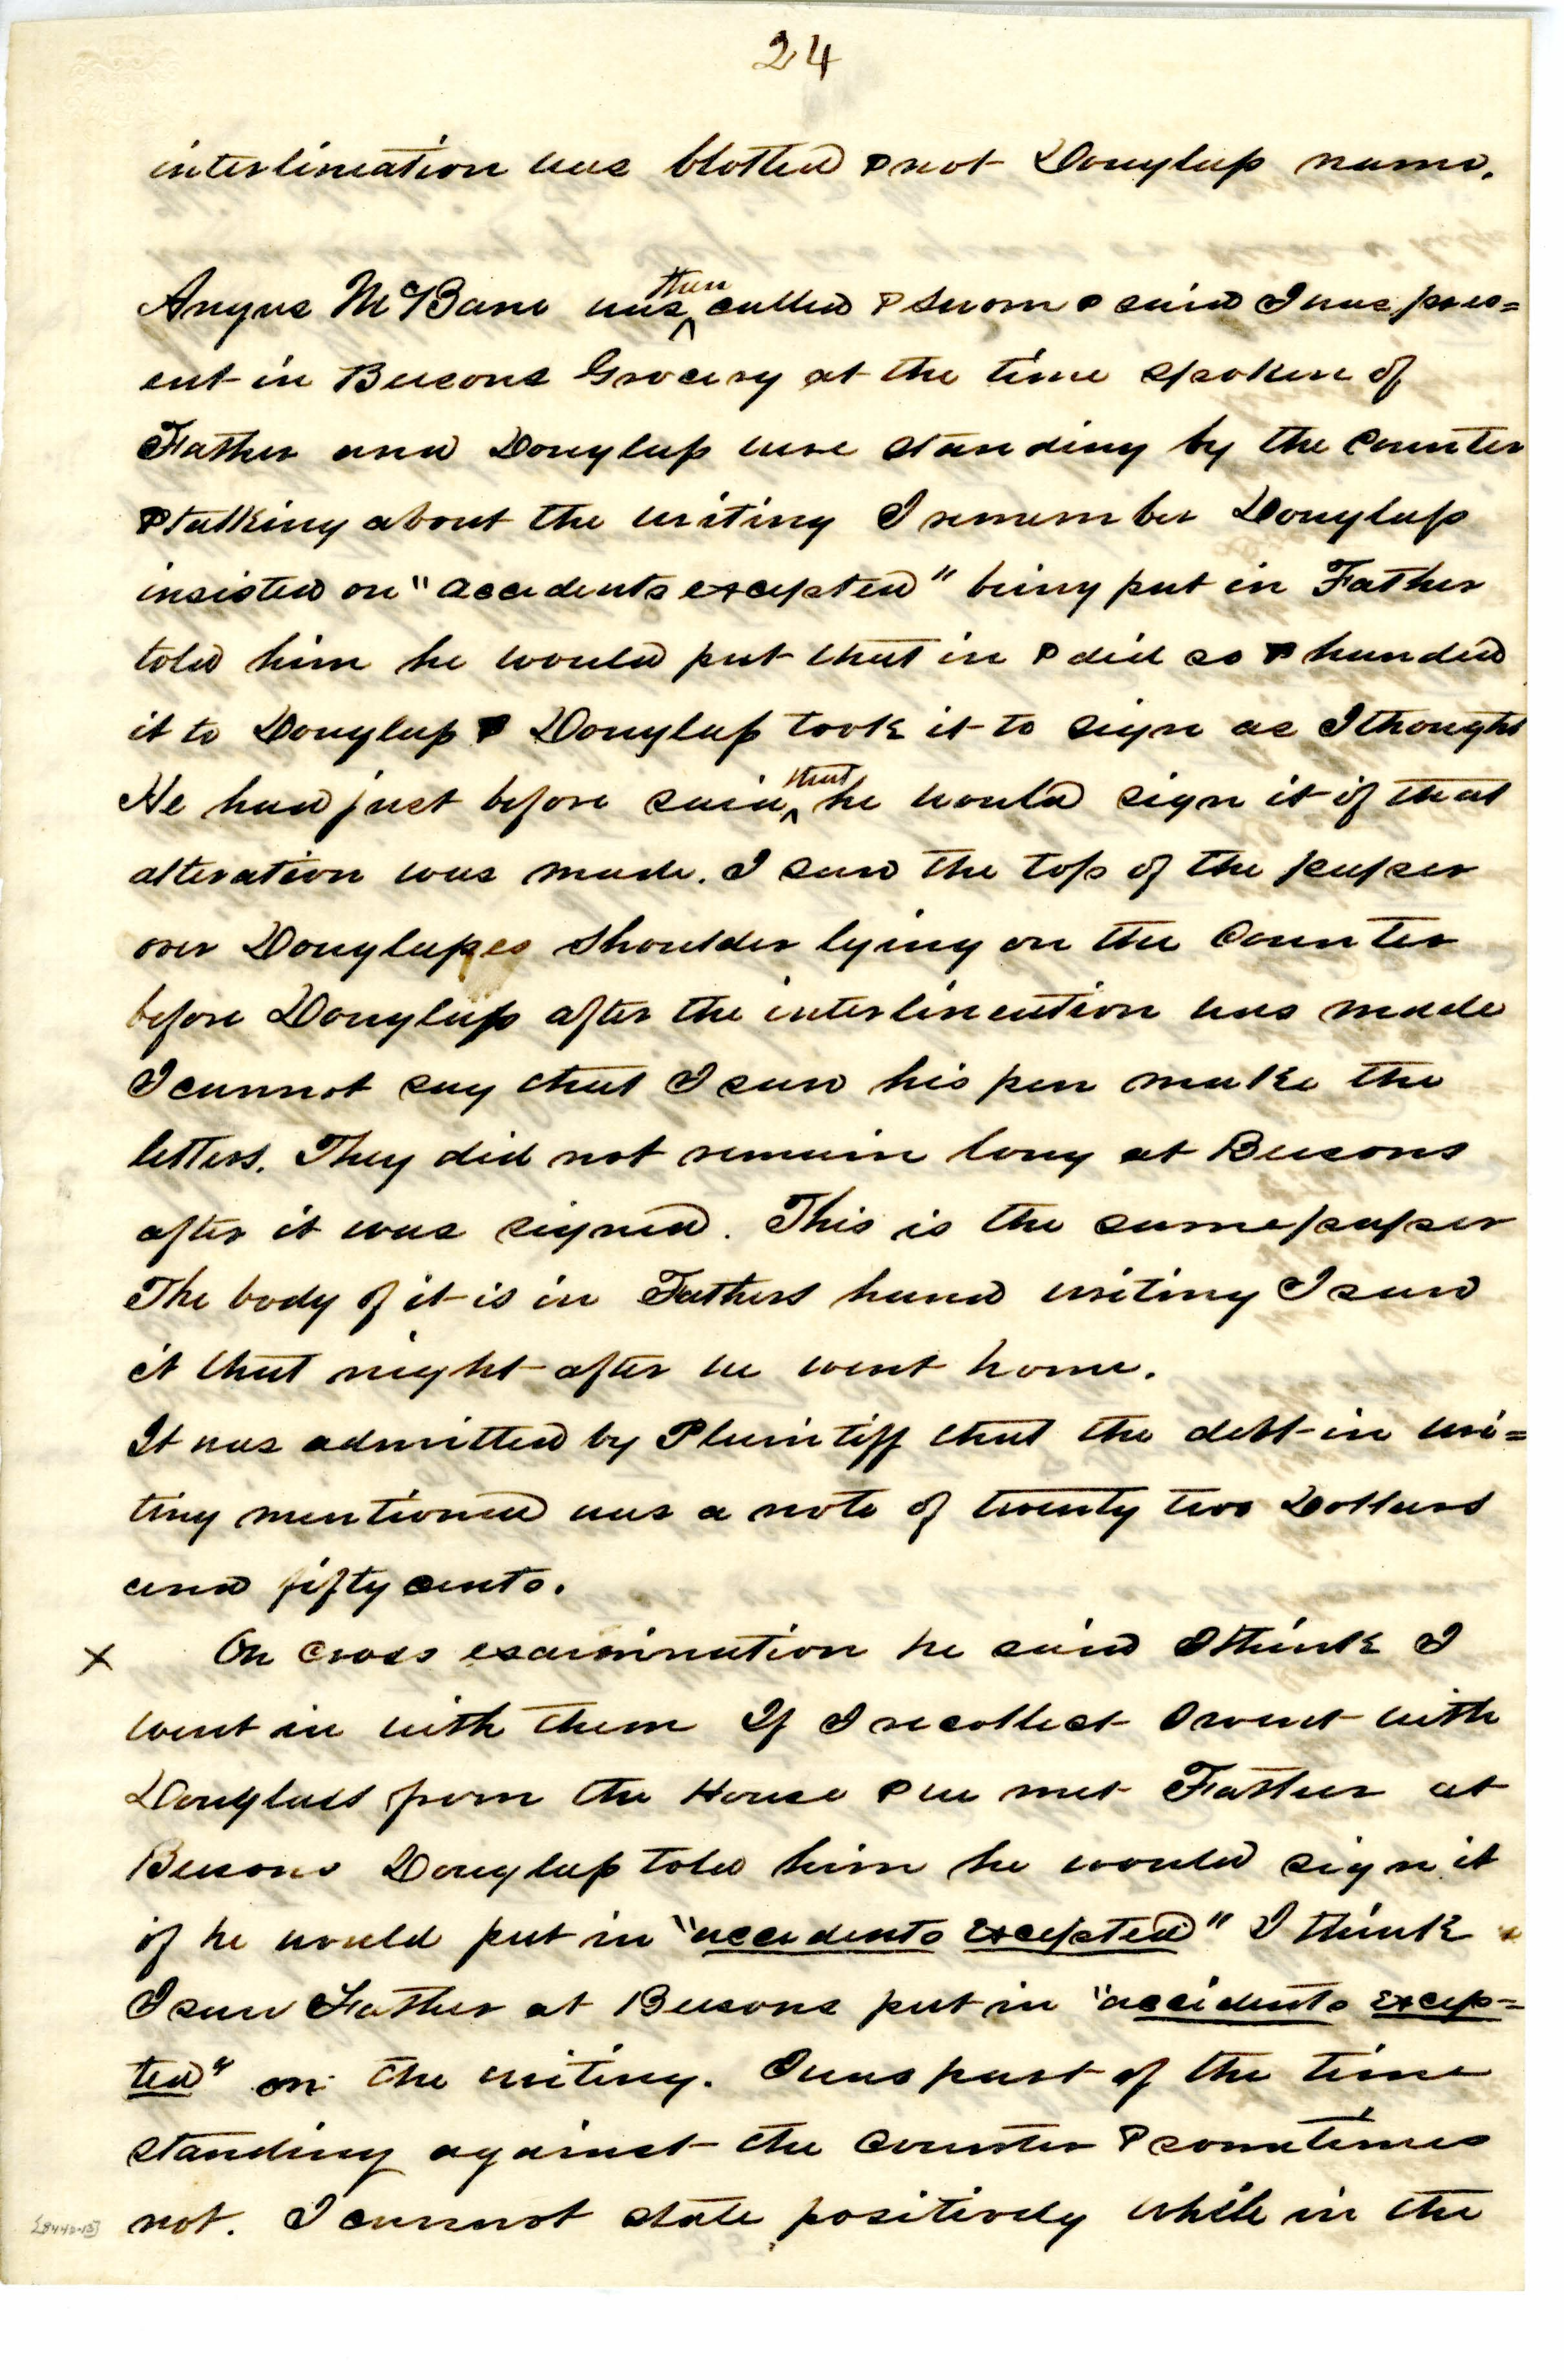 24
interlineation was blotted & not Douglass name.
Angus McBane was then called & sworn & said I was pres=
ent in Beesons Grocery at the time spoken of
Father and Douglass were standing by the Counter
& talking about the writing I remember Douglass
insisted on "accidents excepted" being put in Father
told him he would put that in & did so & handed
it to Douglass & Douglass took it to sign as I thought
He had just before said that he would sign it if that
alteration was made. I saw the top of the paper
over Douglasses shoulder lying on the Counter
before Douglass after the interlineation was made
I cannot say that I saw his pen make the
letters. They did not remain long at Beesons
after it was signed. This is the same paper
The body of it is in Fathers hand writing I saw
it that night after we went home.
It was admitted by Plaintiff that the debt in wri=
ting mentioned was a note of twenty two Dollars
and fifty cents.
x On cross examination he said I think I
went in with them If I recollect I went with
Douglass from the House & we met Father at
Beesons Douglass told him he would sign it
if he would put in "accidents excepted" I think
I saw Father at Beesons put in "accidents excep=
ted" on the writing. I was part of the time
standing against the counter & sometimes
not. I cannot state positively while in the